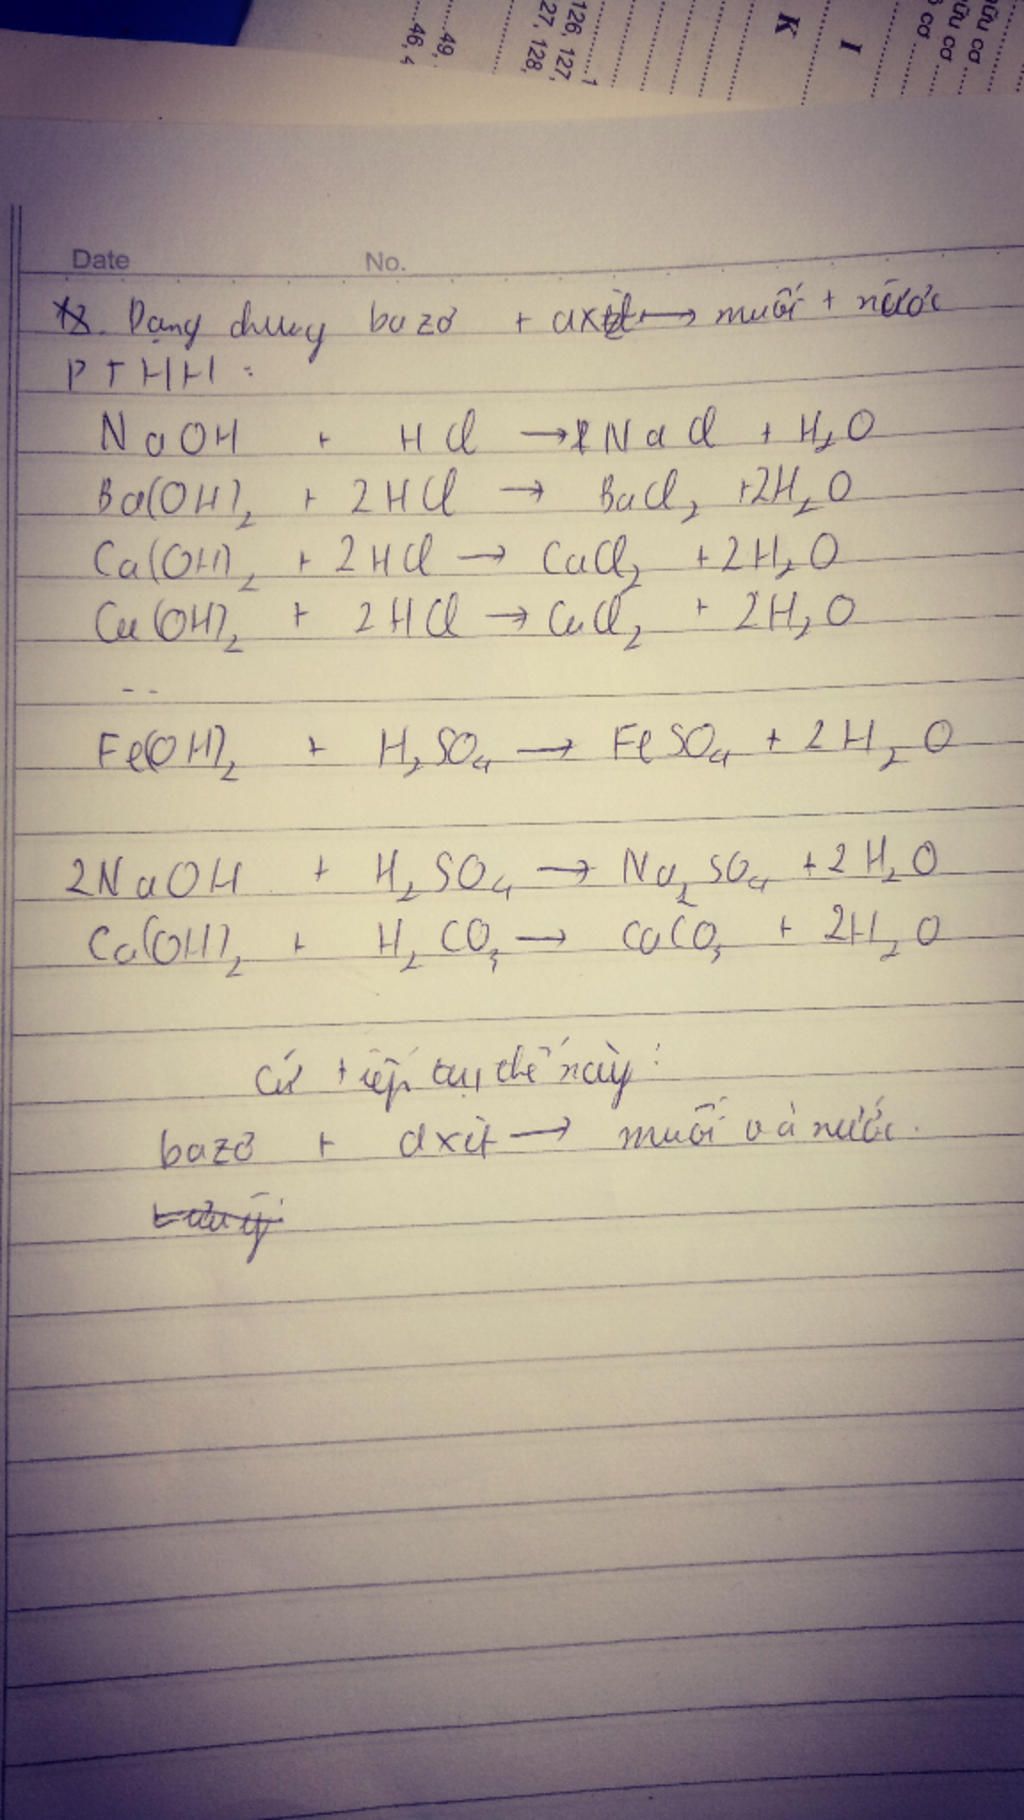 126, 127,
27, 128,
...49,
...46, 4
K
I
hữu cơ
ữu cơ
cơ
Date No.
*3. Dạng chung bazơ + axit → muối + nước
PTHH:
NaOH + HCl → NaCl + H₂O
Ba(OH)₂ + 2HCl → BaCl₂ + 2H₂O
Ca(OH)₂ + 2HCl → CaCl₂ + 2H₂O
Cu(OH)₂ + 2HCl → CuCl₂ + 2H₂O
--
Fe(OH)₂ + H₂SO₄ → FeSO₄ + 2H₂O
2NaOH + H₂SO₄ → Na₂SO₄ + 2H₂O
Ca(OH)₂ + H₂CO₃ → CaCO₃ + 2H₂O
Cứ tiếp tục thế này:
bazơ + axit → muối và nước.